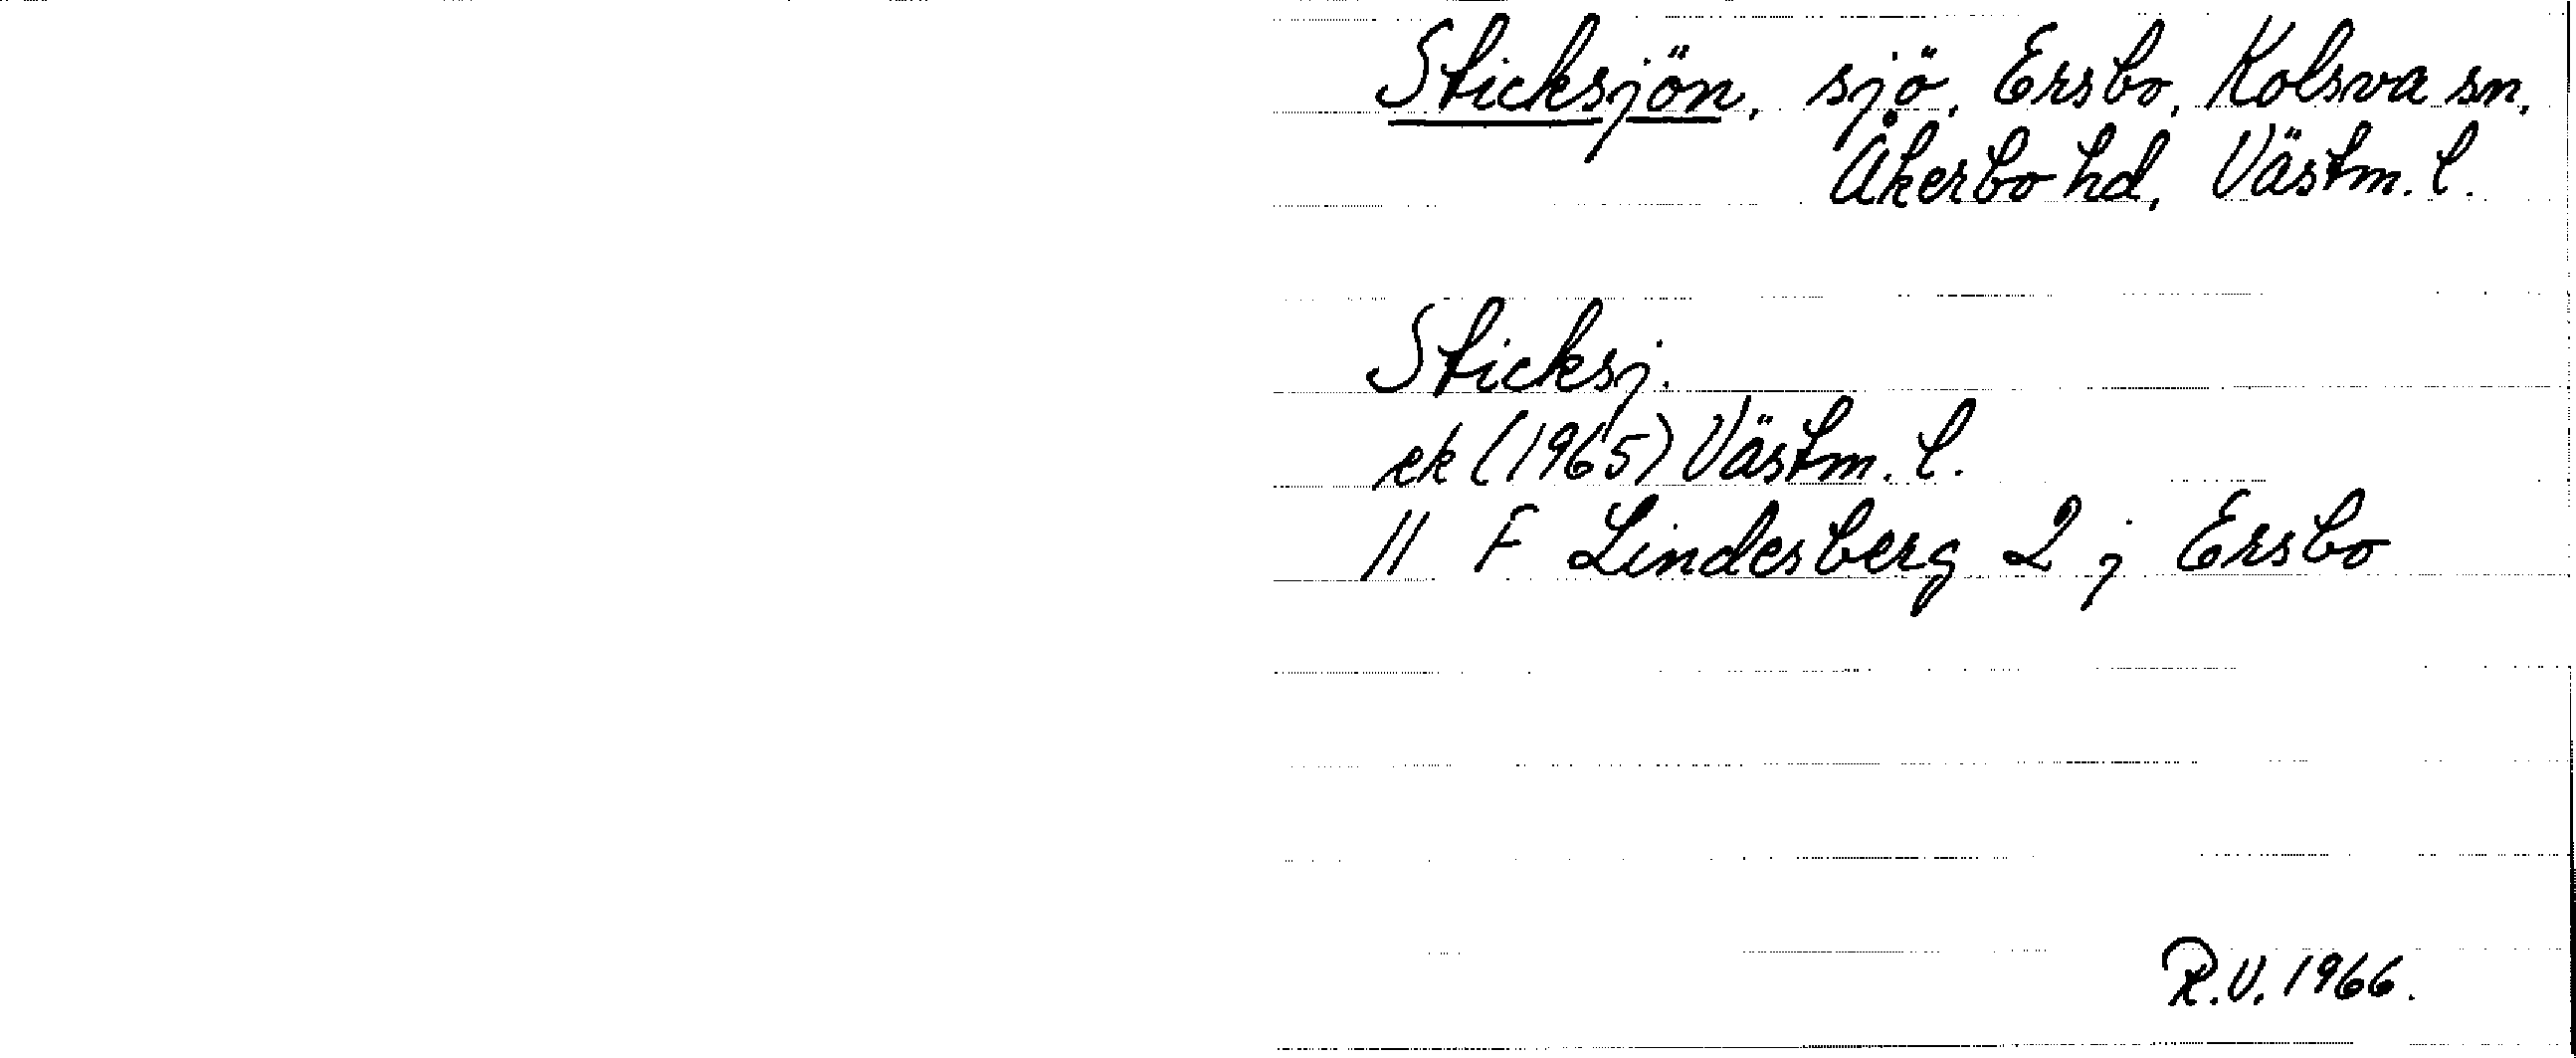 Sticksjön, sjö, Ersbo, Kolsva sn,
Åkerbo hd, Västm. l.
Sticksj.
ek (1965) Västm. l.
11 F Lindesberg 2 j Ersbo
R.V. 1966.